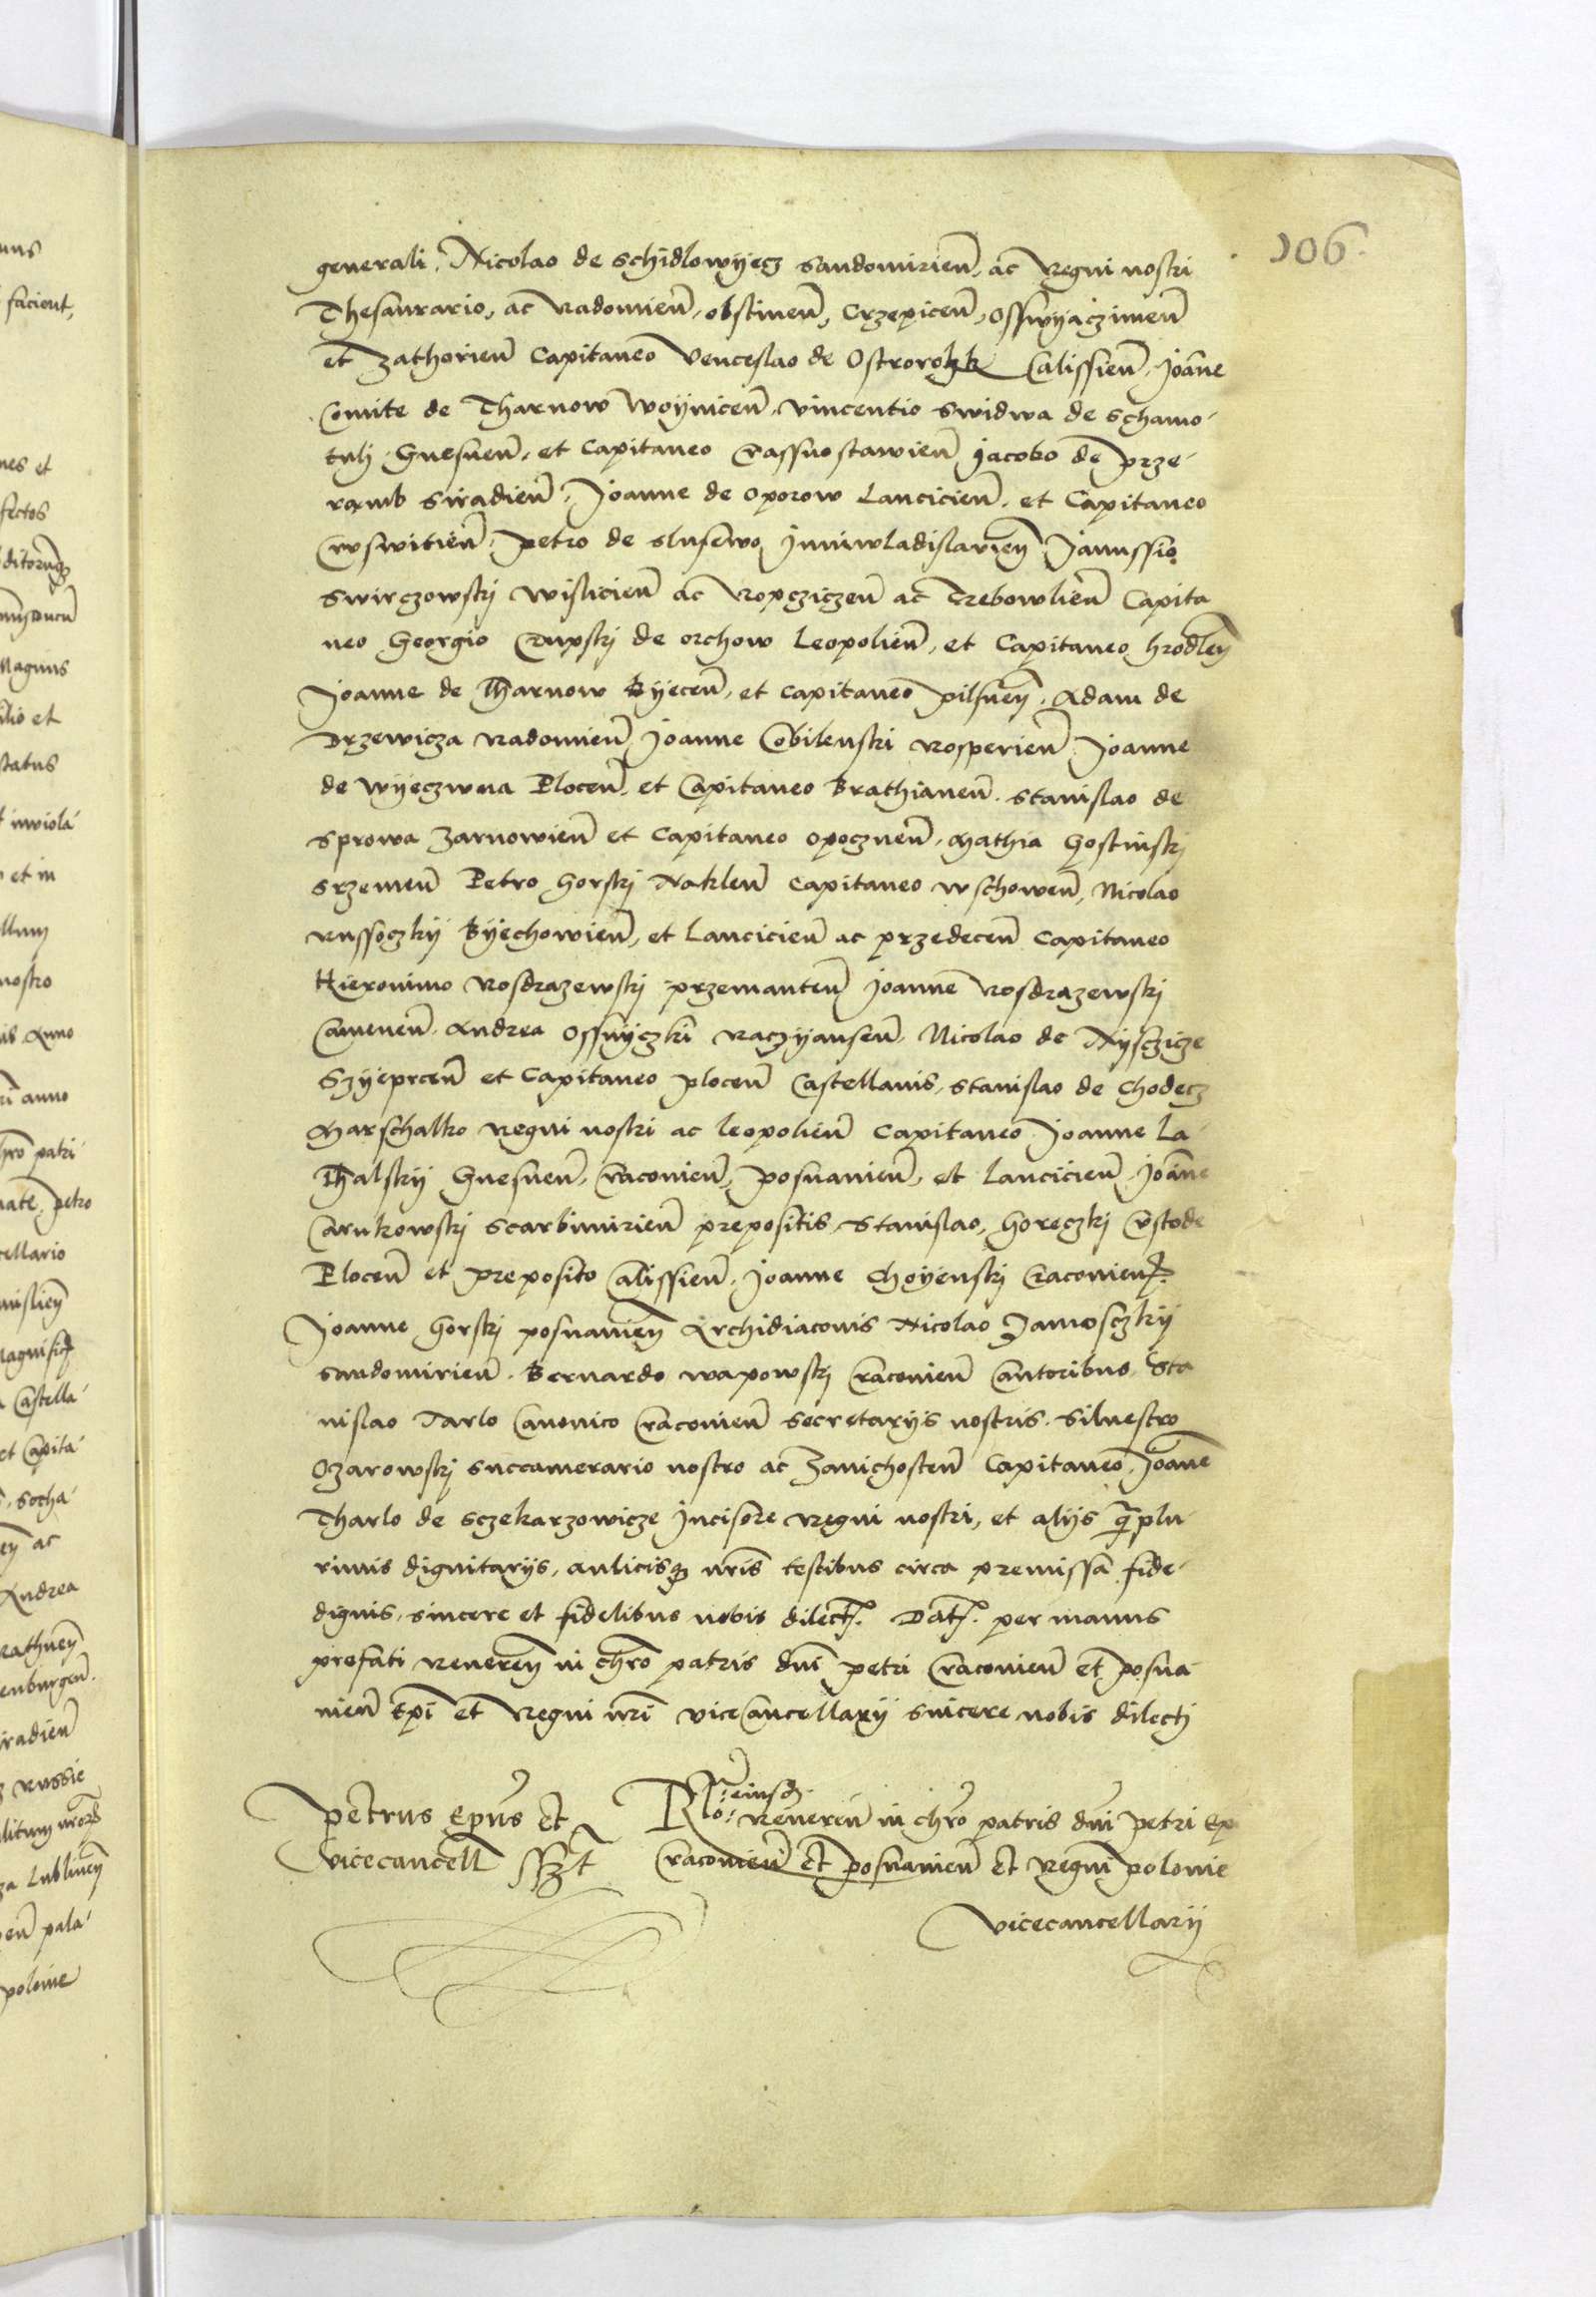 106
generali, Nicolao de Schidlowyecz Sandomirien̄, ac Regni nostri
Thesaurario, ac Radomien̄, Olstinen̄, Crzepicen̄, Osswyączimen̄
et Zathorien̄ Capitaneo Venceslao de Ostrorogk Calissien̄, Joān̄e
Comite de Tharnow Woynicen̄, Vincentio Swidwa de Schamo-
tulj Gnesnen̄, et Capitaneo Crassnostawien̄ Jacobo de Prze-
ramb Siradien̄, Joanne de Oporow Lancicien̄, et Capitaneo
Cruswicien̄, Petro de Slusewo Juniwladislavien̄ Janussio
Swirczowskj Wislicien̄ ac Ropcziczen̄ ac Trebowlien̄ Capita
neo Georgio Crupskj de Orchow Leopolien̄, et Capitaneo hrodlen̄
Joanne de Tharnow Byecen̄, et Capitaneo Pilsnen̄, Adam de
Drzewicza Radomien̄ Joanne Cobilenski Rosperien̄ Joanne
de Wyeczwna Plocen̄, et Capitaneo Brathianen̄. Stanislao de
Sprowa Zarnowien̄ et Capitaneo Opocznen̄, Mathia Gostinskj
Srzemen̄ Petro Gorskj Naklen̄ Capitaneo Wschowen̄, Nicolao
Russoczkÿ Byechowien̄, et Lancicien̄ ac Przedecen̄ Capitaneo
Hieronimo Rosdrazewskj Przemanten̄ Joanne Rosdrazewskj
Camenen̄. Andrea Ossnyczki Raczyansen̄. Nicolao de Nysczicze
Szyeprcen̄ et Capitaneo Plocen̄ Castellanis, Stanislao de Chodecz
Marschalko Regni nostri ac Leopolien̄ Capitaneo Joanne La-
Thalskÿ Gnesnen̄, Cracovien̄, Posnanien̄, et Lancicien̄, Joān̄e
Carnkowskj Scarbimirien̄ prepositis, Stanislao, Goreczkj Custode
Plocen̄ et Preposito Calissien̄, Joanne Choyenskj Cracovien̄.
Joanne Gorskj Posnanien̄ Archidiaconis Nicolao Zamosczkÿ
Sandomirien̄. Bernardo Wapowskj Cracovien̄ Cantoribus, Sta
nislao Tarlo Canonico Cracovien̄ Secretarÿs nostris. Silvestro
Ozarowskj Succamerario nostro ac Zavichosten̄ Capitaneo, Joanē
Tharlo de Sczekarzowicze Incisore Regni nostri, et alÿs q̄plu-
rimis dignitarÿs, aulicisqꝫ nr̄is testibus circa premissa fide-
dignis, sincere et fidelibus nobis dilect. Dat. per manus
prefati Reveren̄ in chr̄o patris dn̄i Petri Cracovien̄ et Posna-
nien̄ Ep̄i et Regni nr̄i viceCancellarÿ sincere nobis dilectj
Petrus Ep̄us et
Vicecancell sszt
Rlo: eiusd.
Reveren̄ in chr̄o patris dn̄i Petri Ep
Cracovien̄ et Posnanien̄ et Regni Polonie
Vicecancellarÿ